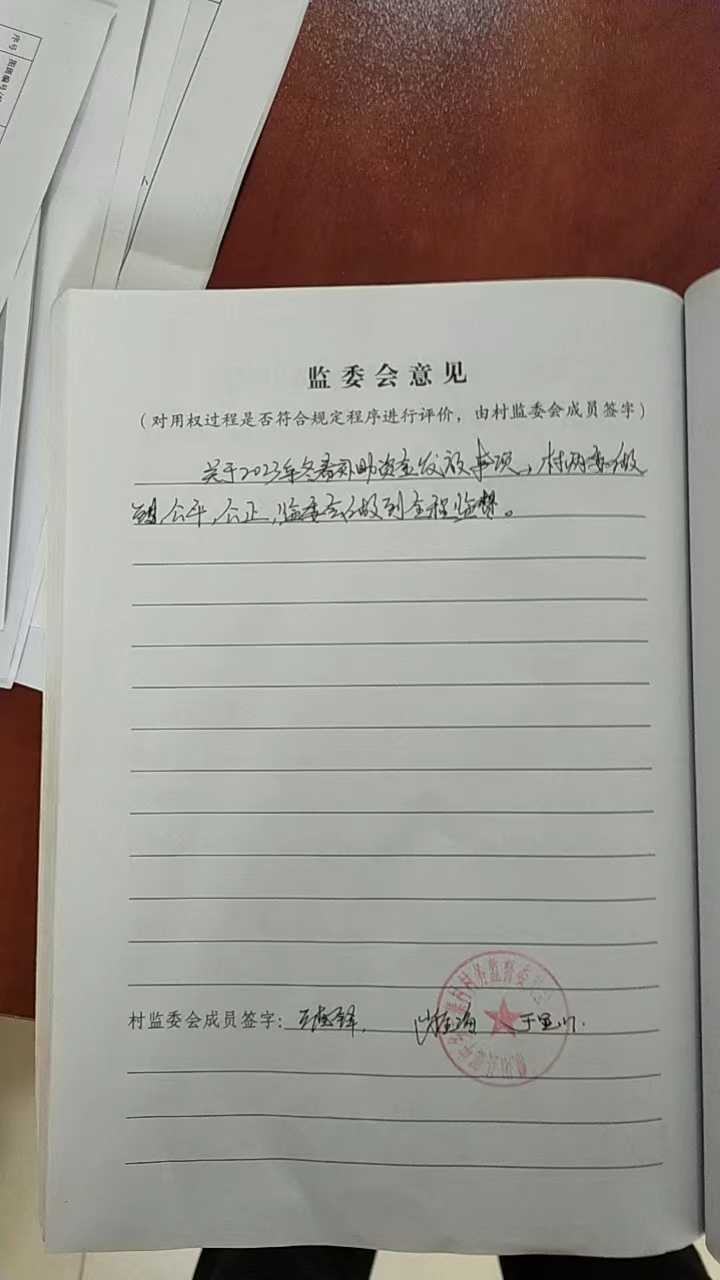 序号
图斑编号
监委会意见
（对用权过程是否符合规定程序进行评价，由村监委会成员签字）
关于2023年冬春补助资金发放事项，村两委做
到公平，公正，监委会做到全程监督。
村监委会成员签字：
村村务监督委员会